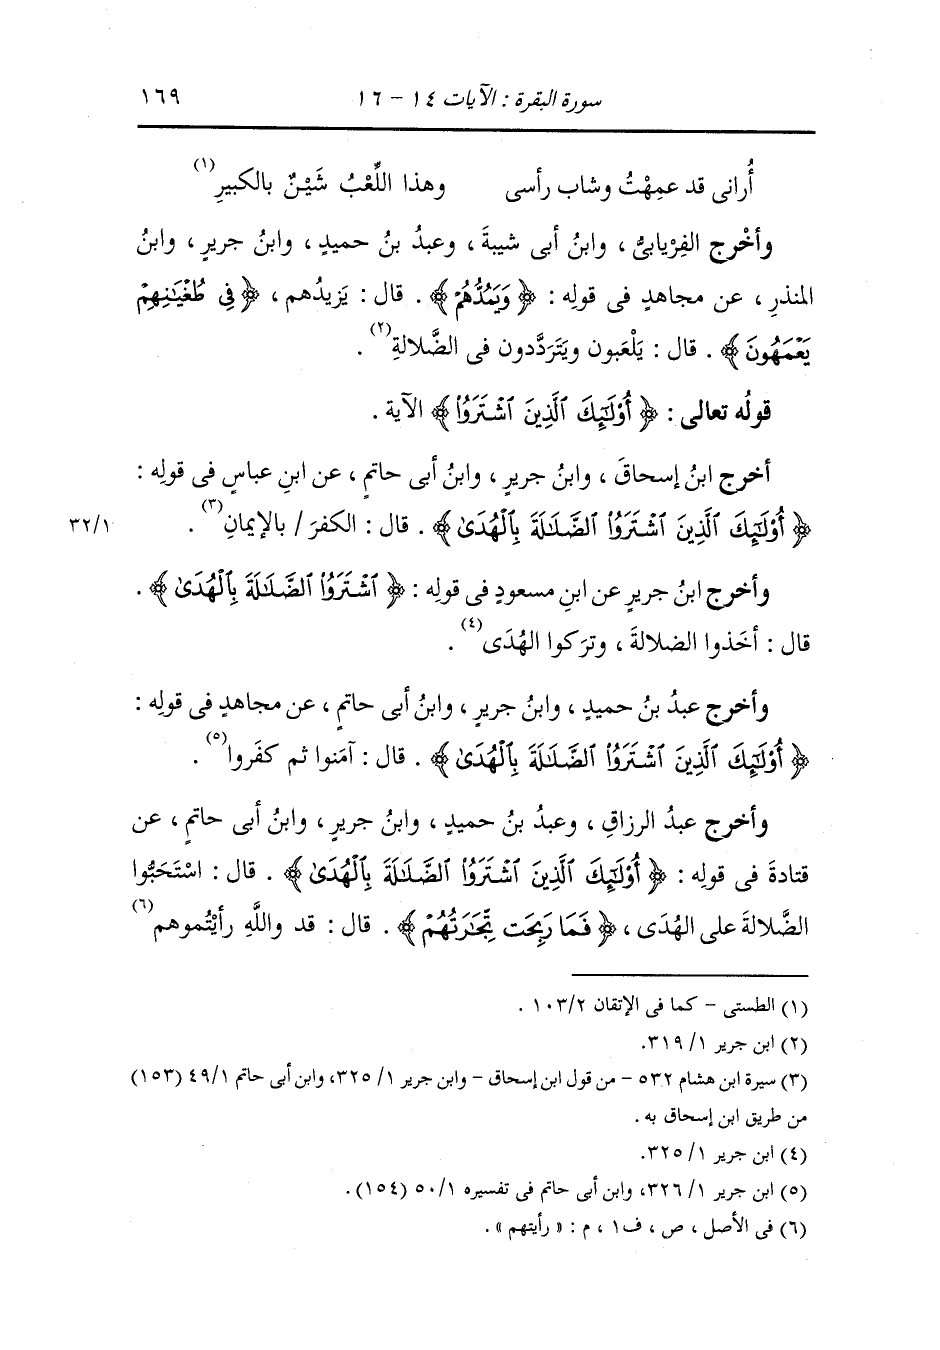 سورة البقرة : الآيات ١٤ - ١٦ ١٦٩
أُرانى قد عمِهْتُ وشاب رأسى وهذا اللَّعْبُ شَيْنٌ بالكبيرِ (١)
وأخْرج الفِرْيابىُّ ، وابنُ أبى شيبةَ ، وعبدُ بنُ حميدٍ ، وابنُ جريرٍ ، وابنُ
المنذرِ ، عن مجاهدٍ فى قولِه : ﴿ وَيَمُدُّهُمْ ﴾ . قال : يَزيدُهم ، ﴿ فِى طُغْيَٰنِهِمْ
يَعْمَهُونَ ﴾ . قال : يَلْعَبون ويَتَردَّدون فى الضَّلالةِ (٢) .
قولُه تعالى : ﴿ أُوْلَٰٓئِكَ ٱلَّذِينَ ٱشْتَرَوُا۟ ﴾ الآية .
أخرج ابنُ إسحاقَ ، وابنُ جريرٍ ، وابنُ أبى حاتمٍ ، عن ابنِ عباسٍ فى قولِه :
﴿ أُوْلَٰٓئِكَ ٱلَّذِينَ ٱشْتَرَوُا۟ ٱلضَّلَٰلَةَ بِٱلْهُدَىٰ ﴾ . قال : الكفرَ / بالإيمانِ (٣) . ٣٢/١
وأخرج ابنُ جريرٍ عن ابنِ مسعودٍ فى قولِه : ﴿ ٱشْتَرَوُا۟ ٱلضَّلَٰلَةَ بِٱلْهُدَىٰ ﴾ .
قال : أخَذوا الضلالةَ ، وترَكوا الهُدَى (٤) .
وأخرج عبدُ بنُ حميدٍ ، وابنُ جريرٍ ، وابنُ أبى حاتمٍ ، عن مجاهدٍ فى قولِه :
﴿ أُوْلَٰٓئِكَ ٱلَّذِينَ ٱشْتَرَوُا۟ ٱلضَّلَٰلَةَ بِٱلْهُدَىٰ ﴾ . قال : آمَنوا ثم كفَروا (٥) .
وأخرج عبدُ الرزاقِ ، وعبدُ بنُ حميدٍ ، وابنُ جريرٍ ، وابنُ أبى حاتمٍ ، عن
قتادةَ فى قولِه : ﴿ أُوْلَٰٓئِكَ ٱلَّذِينَ ٱشْتَرَوُا۟ ٱلضَّلَٰلَةَ بِٱلْهُدَىٰ ﴾ . قال : اسْتَحَبُّوا
الضَّلالةَ على الهُدَى ، ﴿ فَمَا رَبِحَت تِّجَٰرَتُهُمْ ﴾ . قال : قد واللَّهِ رأيْتُموهم (٦)
(١) الطستى - كما فى الإتقان ١٠٣/٢ .
(٢) ابن جرير ١/ ٣١٩.
(٣) سيرة ابن هشام ٥٣٢ - من قول ابن إسحاق - وابن جرير ١/ ٣٢٥، وابن أبى حاتم ٤٩/١ (١٥٣)
من طريق ابن إسحاق به .
(٤) ابن جرير ١/ ٣٢٥.
(٥) ابن جرير ١/ ٣٢٦، وابن أبى حاتم فى تفسيره ٥٠/١ (١٥٤).
(٦) فى الأصل ، ص ، ف١ ، م : « رأيتهم » .